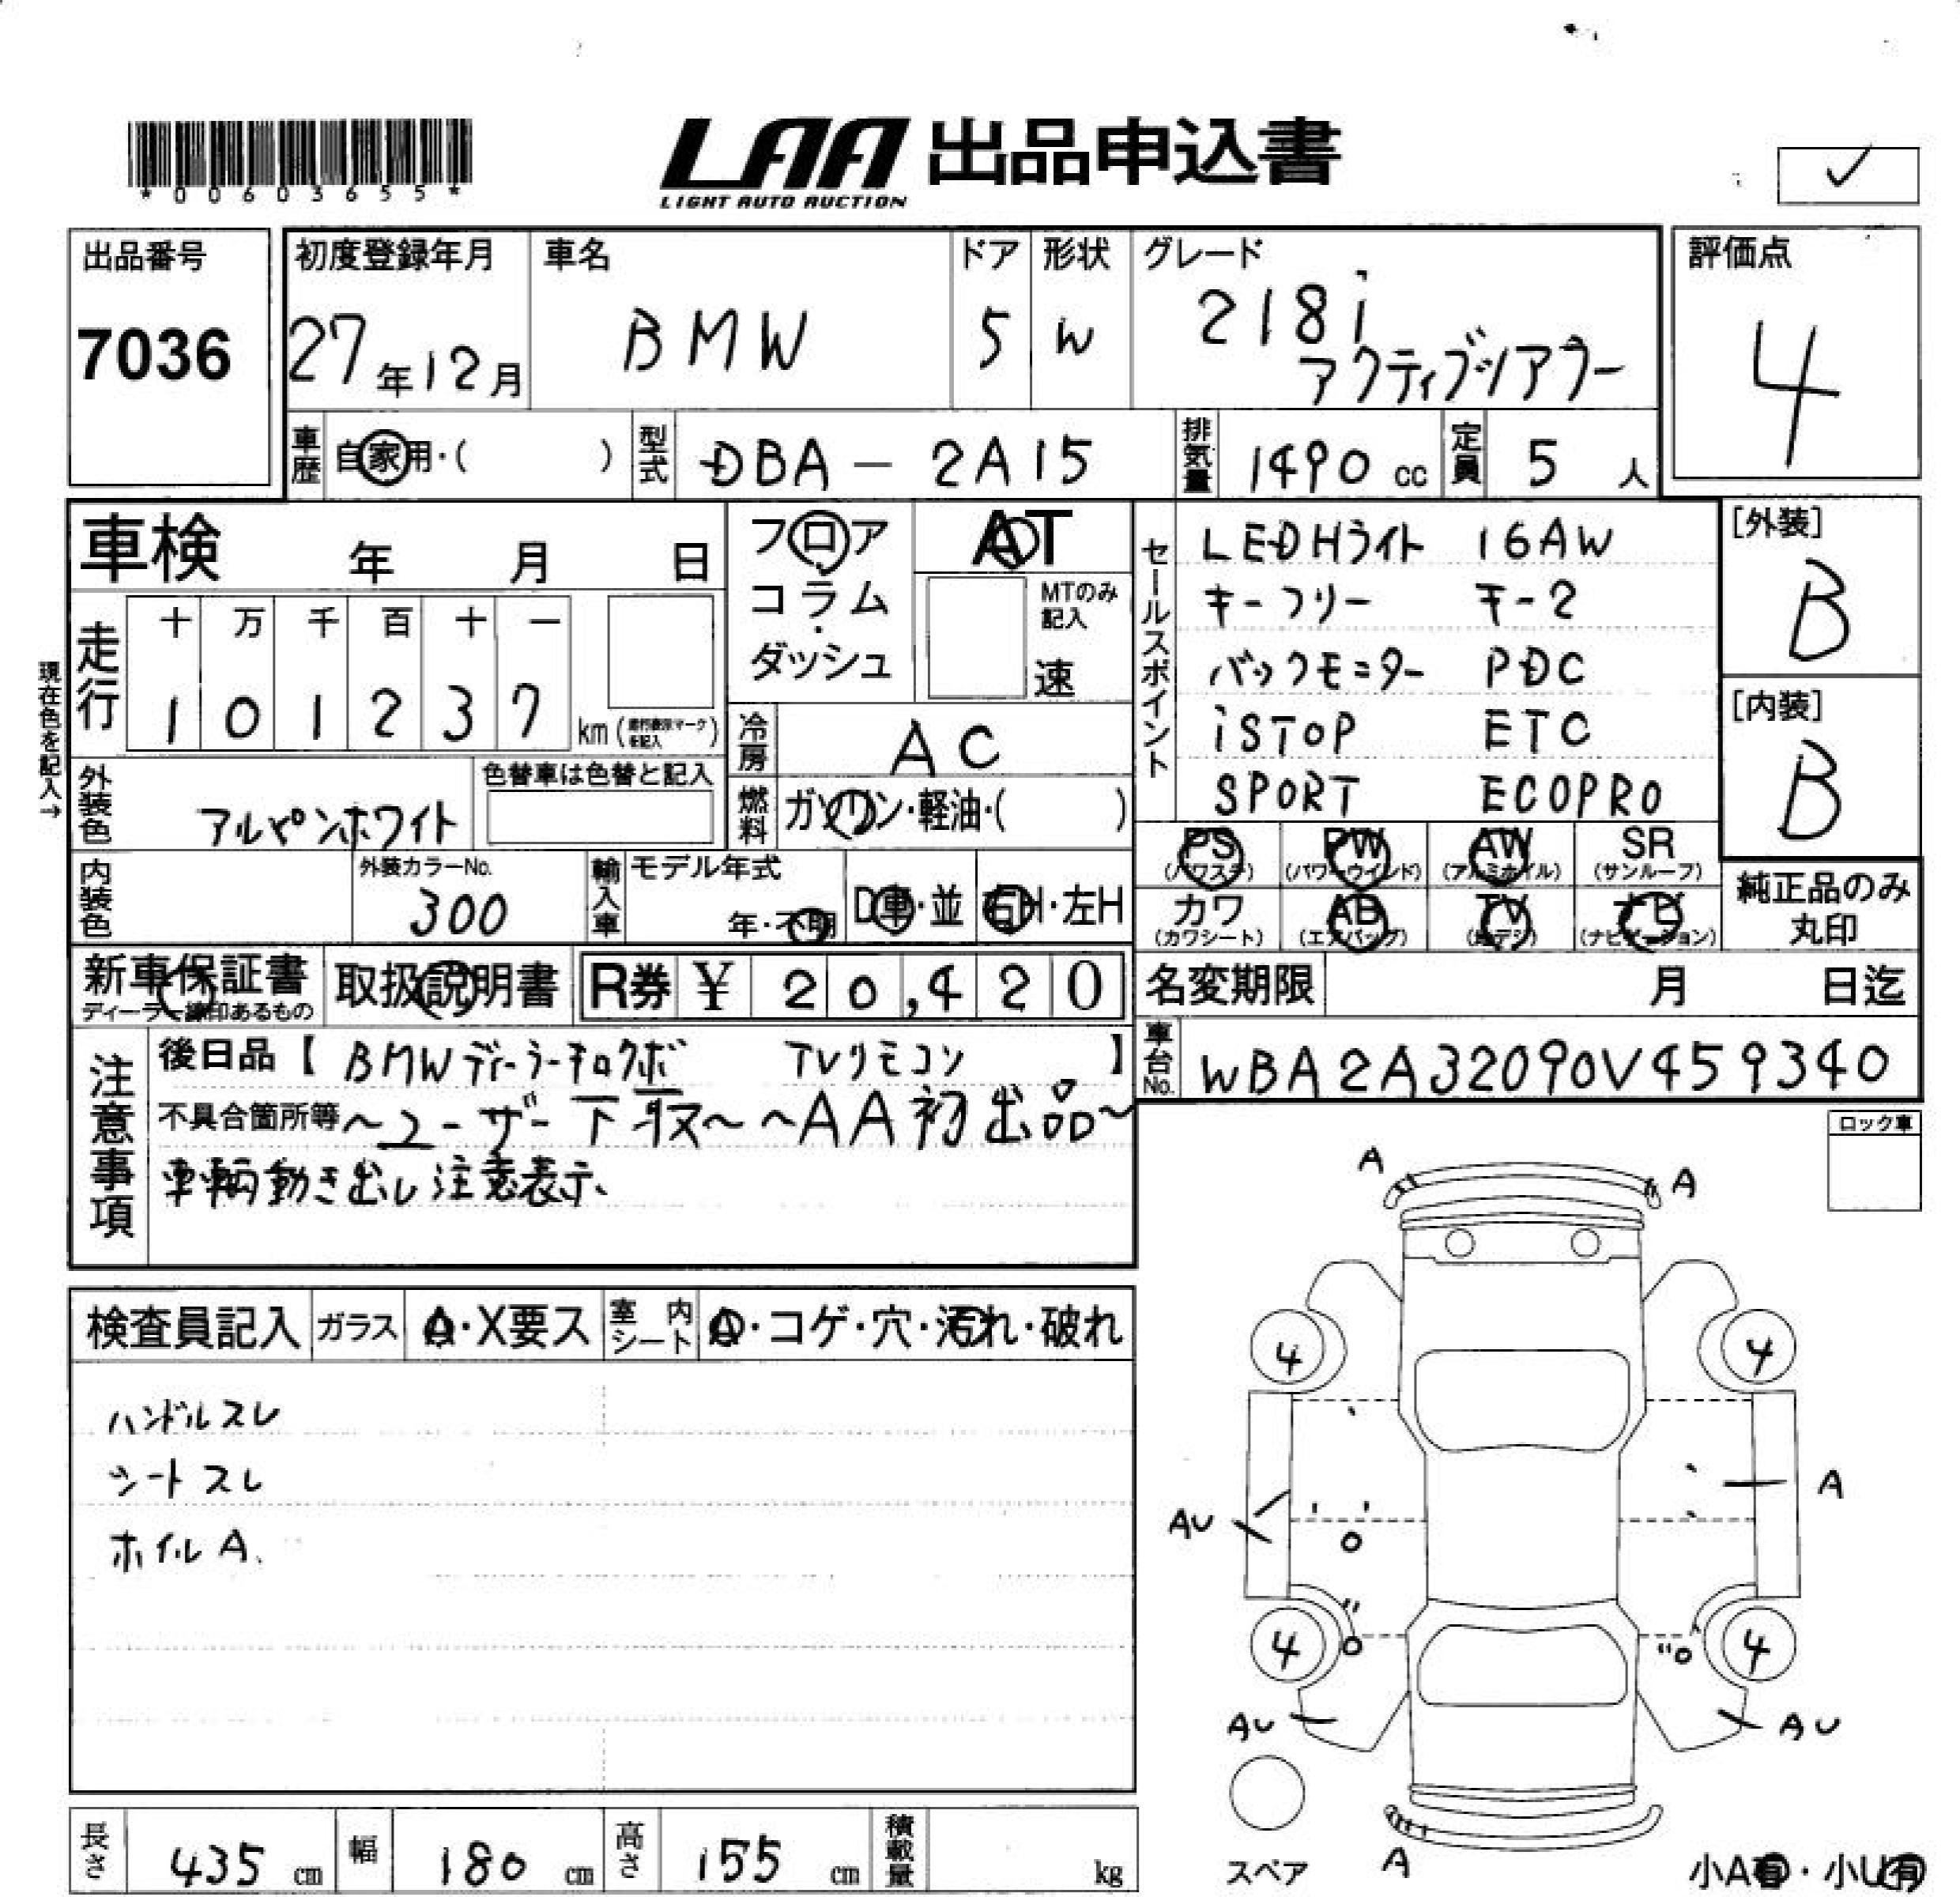 *00603655*
LAA 出品申込書
LIGHT AUTO AUCTION
✓
出品番号
7036
初度登録年月
27年12月
車名
BMW
ドア
5
形状
W
グレード
218i
アクティブツアラー
評価点
4
車歴
自家用・( )
型式
DBA-2A15
排気量
1490cc
定員
5人
車検 年 月 日
フロア
コラム
ダッシュ
AT
MTのみ
記入
速
走行
十 万 千 百 十 一
1 0 1 2 3 7 km
現在色を記入→
冷房
AC
外装色
アルペンホワイト
色替車は色替と記入
燃料
ガソリン・軽油・( )
内装色
外装カラーNo.
300
輸入車
モデル年式
年・不明
D車・並
右H・左H
セールスポイント
LEDHライト 16AW
キーフリー キー2
バックモニター PDC
iSTOP ETC
SPORT ECOPRO
[外装]
B
[内装]
B
PS
(パワステ)
PW
(パワーウインド)
AW
(アルミホイル)
SR
(サンルーフ)
カワ
(カワシート)
AB
(エアバッグ)
TV
(地デジ)
ナビ
(ナビゲーション)
純正品のみ
丸印
新車保証書
ディーラー印あるもの
取扱説明書
R券 ¥20,420
名変期限 月 日迄
車台No.
WBA2A32090V459340
注意事項
後日品【 BMWディーラーキロクボ TVリモコン 】
不具合箇所等 〜ユーザー下取〜 〜AA初出品〜
車輌動き出し注意表示
ロック車
検査員記入
ガラス
A・X要ス
室内シート
A・コゲ・穴・汚れ・破れ
ハンドルスレ
シートスレ
ホイルA.
A A
4 4
A
AU
4 4
AU AU
A
スペア
小A有・小U有
長さ 435cm
幅 180cm
高さ 155cm
積載量 kg